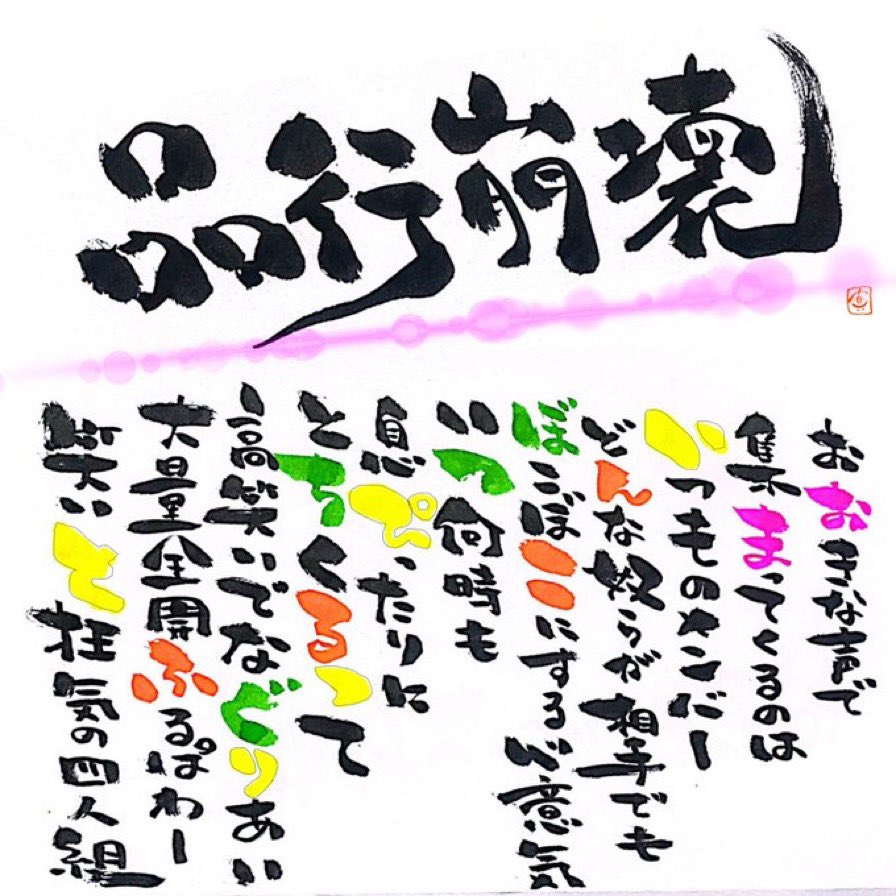 品行崩壊
おおきな声で
集まってくるのは
いつものメンバー
どんな奴らが相手でも
ぼこぼこにする心意気
いつ何時も
息ぴったりに
とちくるって
高笑いでなぐりあい
大量全開ふるぱわー
笑いと狂気の四人組